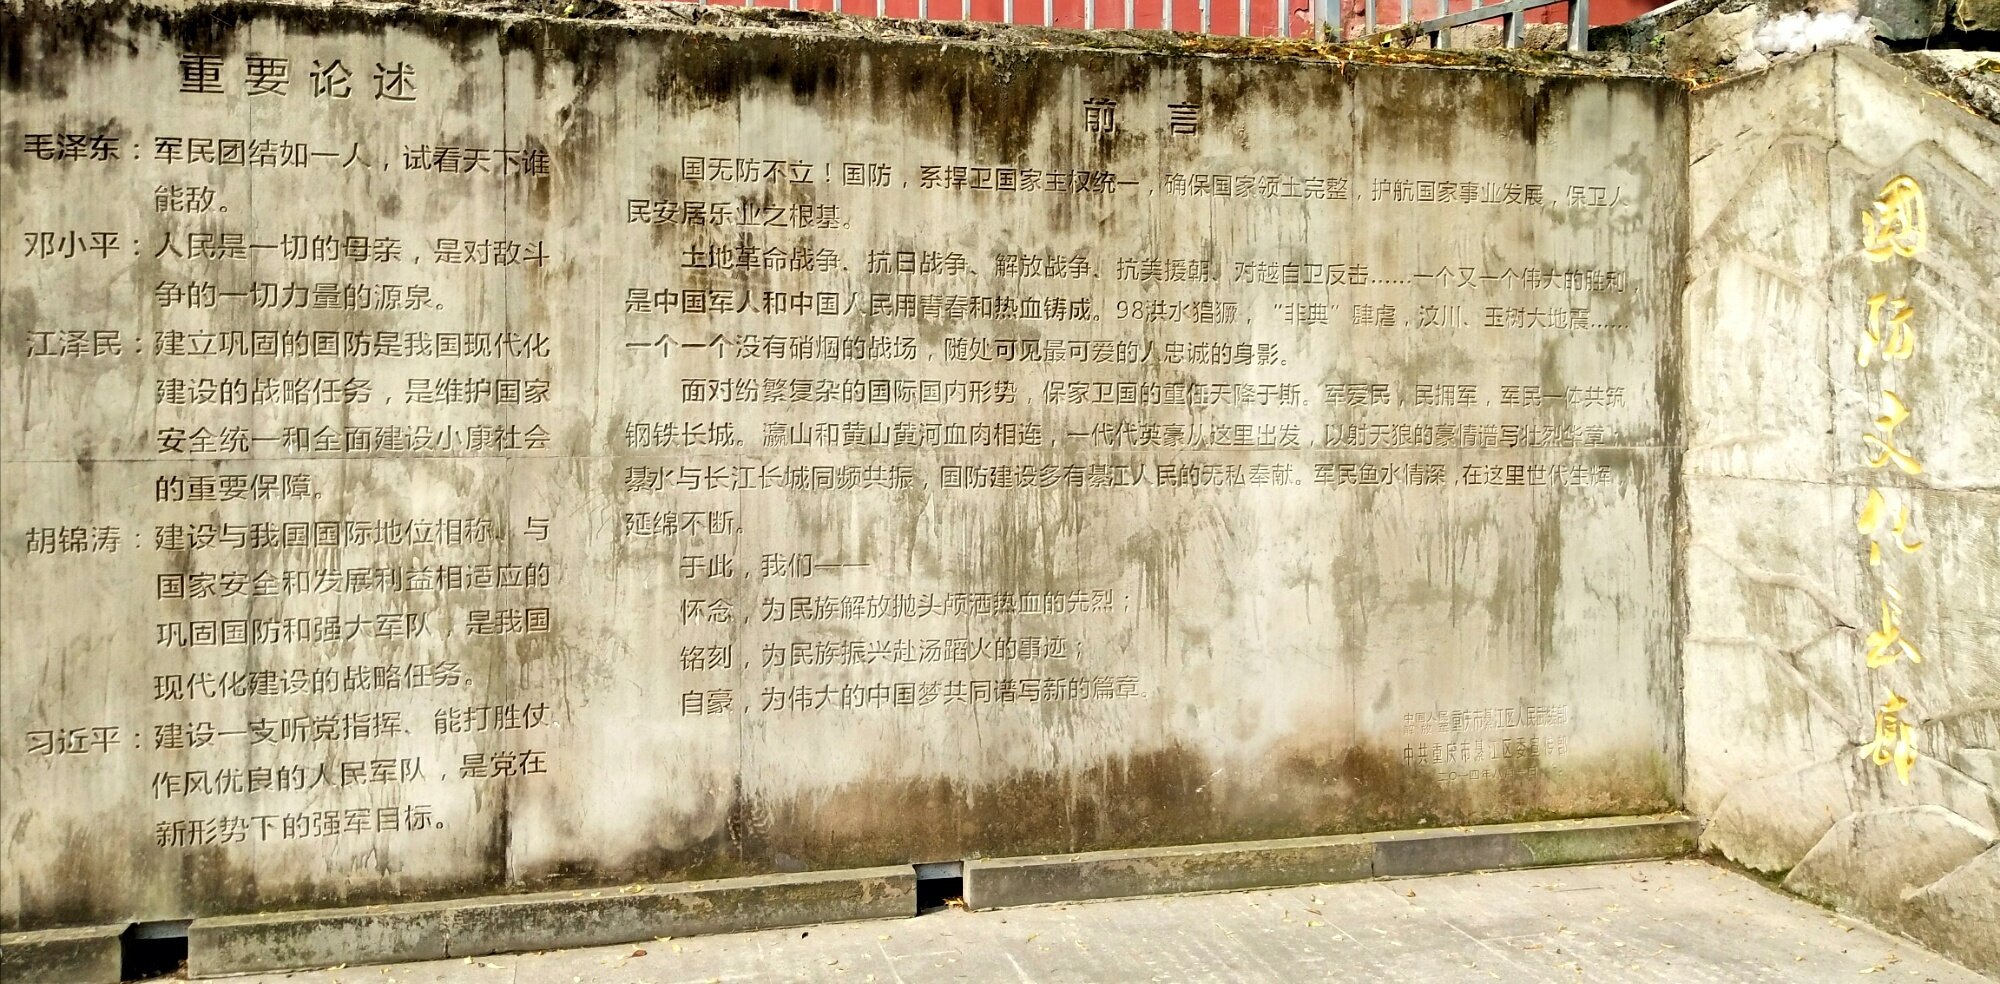 重要论述
毛泽东：军民团结如一人，试看天下谁
能敌。
邓小平：人民是一切的母亲，是对敌斗
争的一切力量的源泉。
江泽民：建立巩固的国防是我国现代化
建设的战略任务，是维护国家
安全统一和全面建设小康社会
的重要保障。
胡锦涛：建设与我国国际地位相称、与
国家安全和发展利益相适应的
巩固国防和强大军队，是我国
现代化建设的战略任务。
习近平：建设一支听党指挥、能打胜仗、
作风优良的人民军队，是党在
新形势下的强军目标。
前言
国无防不立！国防，系捍卫国家主权统一，确保国家领土完整，护航国家事业发展，保卫人
民安居乐业之根基。
土地革命战争、抗日战争、解放战争、抗美援朝、对越自卫反击……一个又一个伟大的胜利，
是中国军人和中国人民用青春和热血铸成。98洪水猖獗，“非典”肆虐，汶川、玉树大地震……
一个一个没有硝烟的战场，随处可见最可爱的人忠诚的身影。
面对纷繁复杂的国际国内形势，保家卫国的重任天降于斯。军爱民，民拥军，军民一体共筑
钢铁长城。瀛山和黄山黄河血肉相连，一代代英豪从这里出发，以射天狼的豪情谱写壮烈华章；
綦水与长江长城同频共振，国防建设多有綦江人民的无私奉献。军民鱼水情深，在这里世代生辉，
延绵不断。
于此，我们——
怀念，为民族解放抛头颅洒热血的先烈；
铭刻，为民族振兴赴汤蹈火的事迹；
自豪，为伟大的中国梦共同谱写新的篇章。
重庆市綦江区人民武装部
中共重庆市綦江区委宣传部
二〇一四年八月一日
国防文化长廊